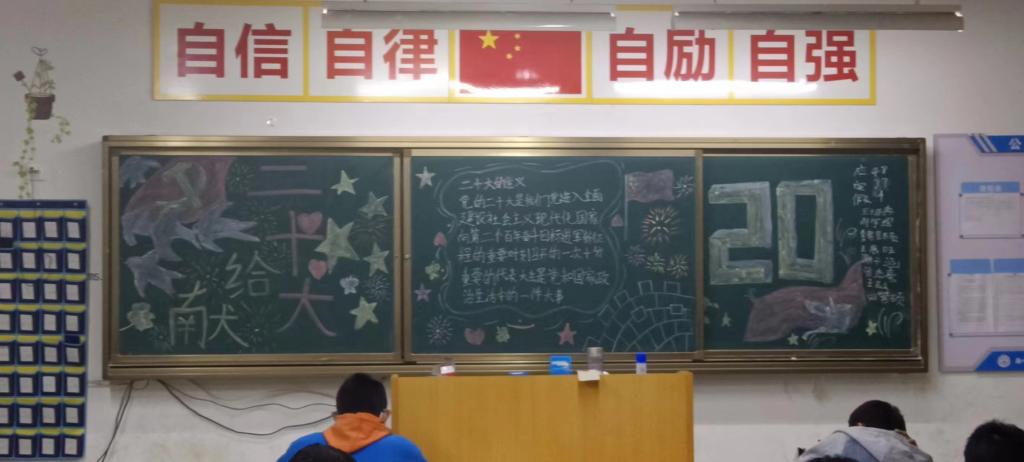 自信 自律 自励 自强
献给
二十大
二十大的意义
党的二十大是我们党进入全面
建设社会主义现代化国家
向第二个百年奋斗目标进军新征
程的重要时刻召开的一次十分
重要的代表大会是党和国家政
治生活中的一件大事
20
公